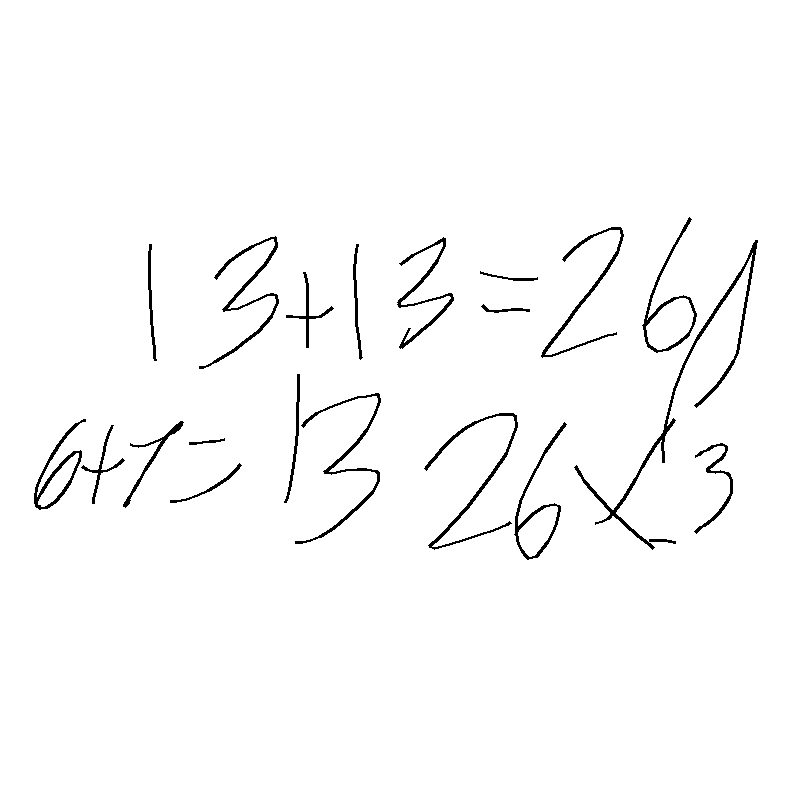 13+13=26
6+7=13 26×13